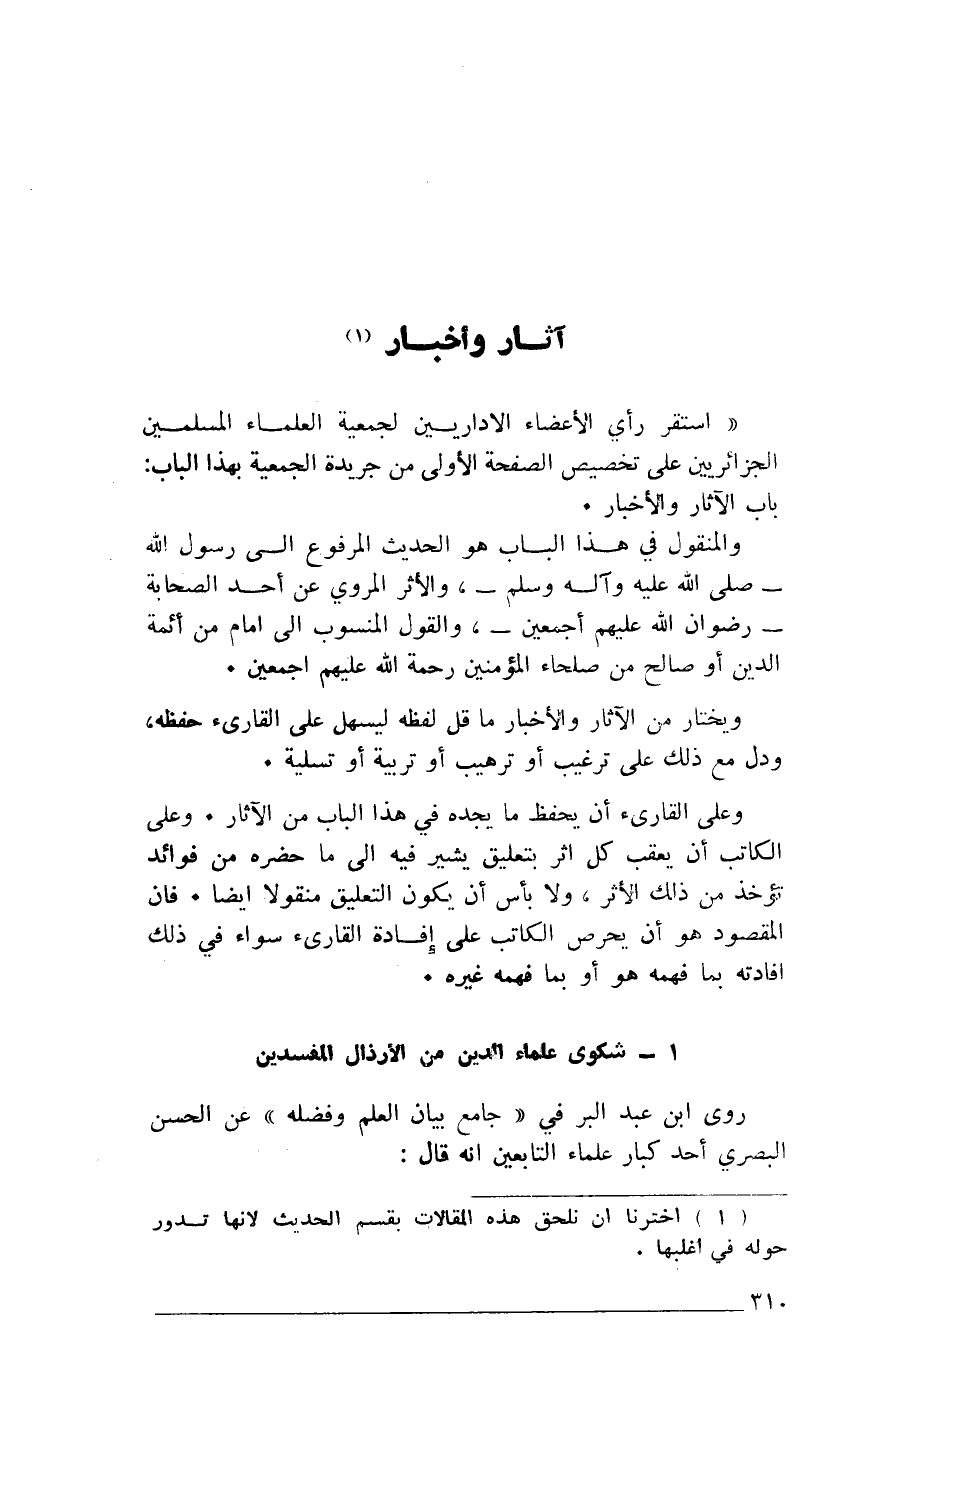 آثــار وأخبــار (١)
« استقر رأي الأعضاء الاداريــين لجمعية العلمــاء المسلمــين
الجزائريين على تخصيص الصفحة الأولى من جريدة الجمعية بهذا الباب:
باب الآثار والأخبار •
والمنقول في هــذا البــاب هو الحديث المرفوع الــى رسول الله
ــ صلى الله عليه وآلــه وسلم ــ ، والأثر المروي عن أحــد الصحابة
ــ رضوان الله عليهم أجمعين ــ ، والقول المنسوب الى امام من أئمة
الدين أو صالح من صلحاء المؤمنين رحمة الله عليهم اجمعين •
ويختار من الآثار والأخبار ما قل لفظه ليسهل على القارىء حفظه،
ودل مع ذلك على ترغيب أو ترهيب أو تربية أو تسلية •
وعلى القارىء أن يحفظ ما يجده في هذا الباب من الآثار • وعلى
الكاتب أن يعقب كل اثر بتعليق يشير فيه الى ما حضره من فوائد
تؤخذ من ذلك الأثر ، ولا بأس أن يكون التعليق منقولا ايضا • فان
المقصود هو أن يحرص الكاتب على إفــادة القارىء سواء في ذلك
افادته بما فهمه هو أو بما فهمه غيره •
١ ــ شكوى علماء الدين من الأرذال المفسدين
روى ابن عبد البر في « جامع بيان العلم وفضله » عن الحسن
البصري أحد كبار علماء التابعين انه قال :
( ١ ) اخترنا ان نلحق هذه المقالات بقسم الحديث لانها تــدور
حوله في اغلبها .
٣١٠